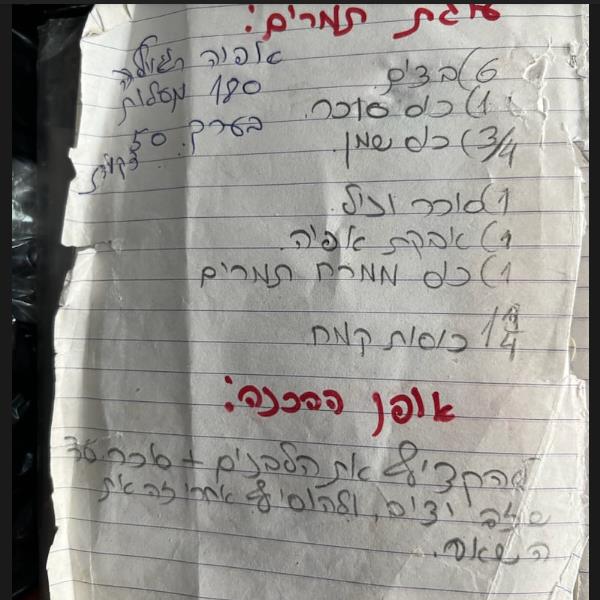 עוגת תמרים:
6) בצים
1) כוס סוכר.
3/4) כוס שמן.
אפיה רגילה
180 מעלות
בערך 50
דקות
1 סוכר וניל.
1) אבקת אפיה.
1) כוס ממרח תמרים
1 3/4 כוסות קמח
אופן ההכנה:
להקציף את הלבנים + סוכר עד
יציב, ולהוסיף אחרי זה את
השאר.